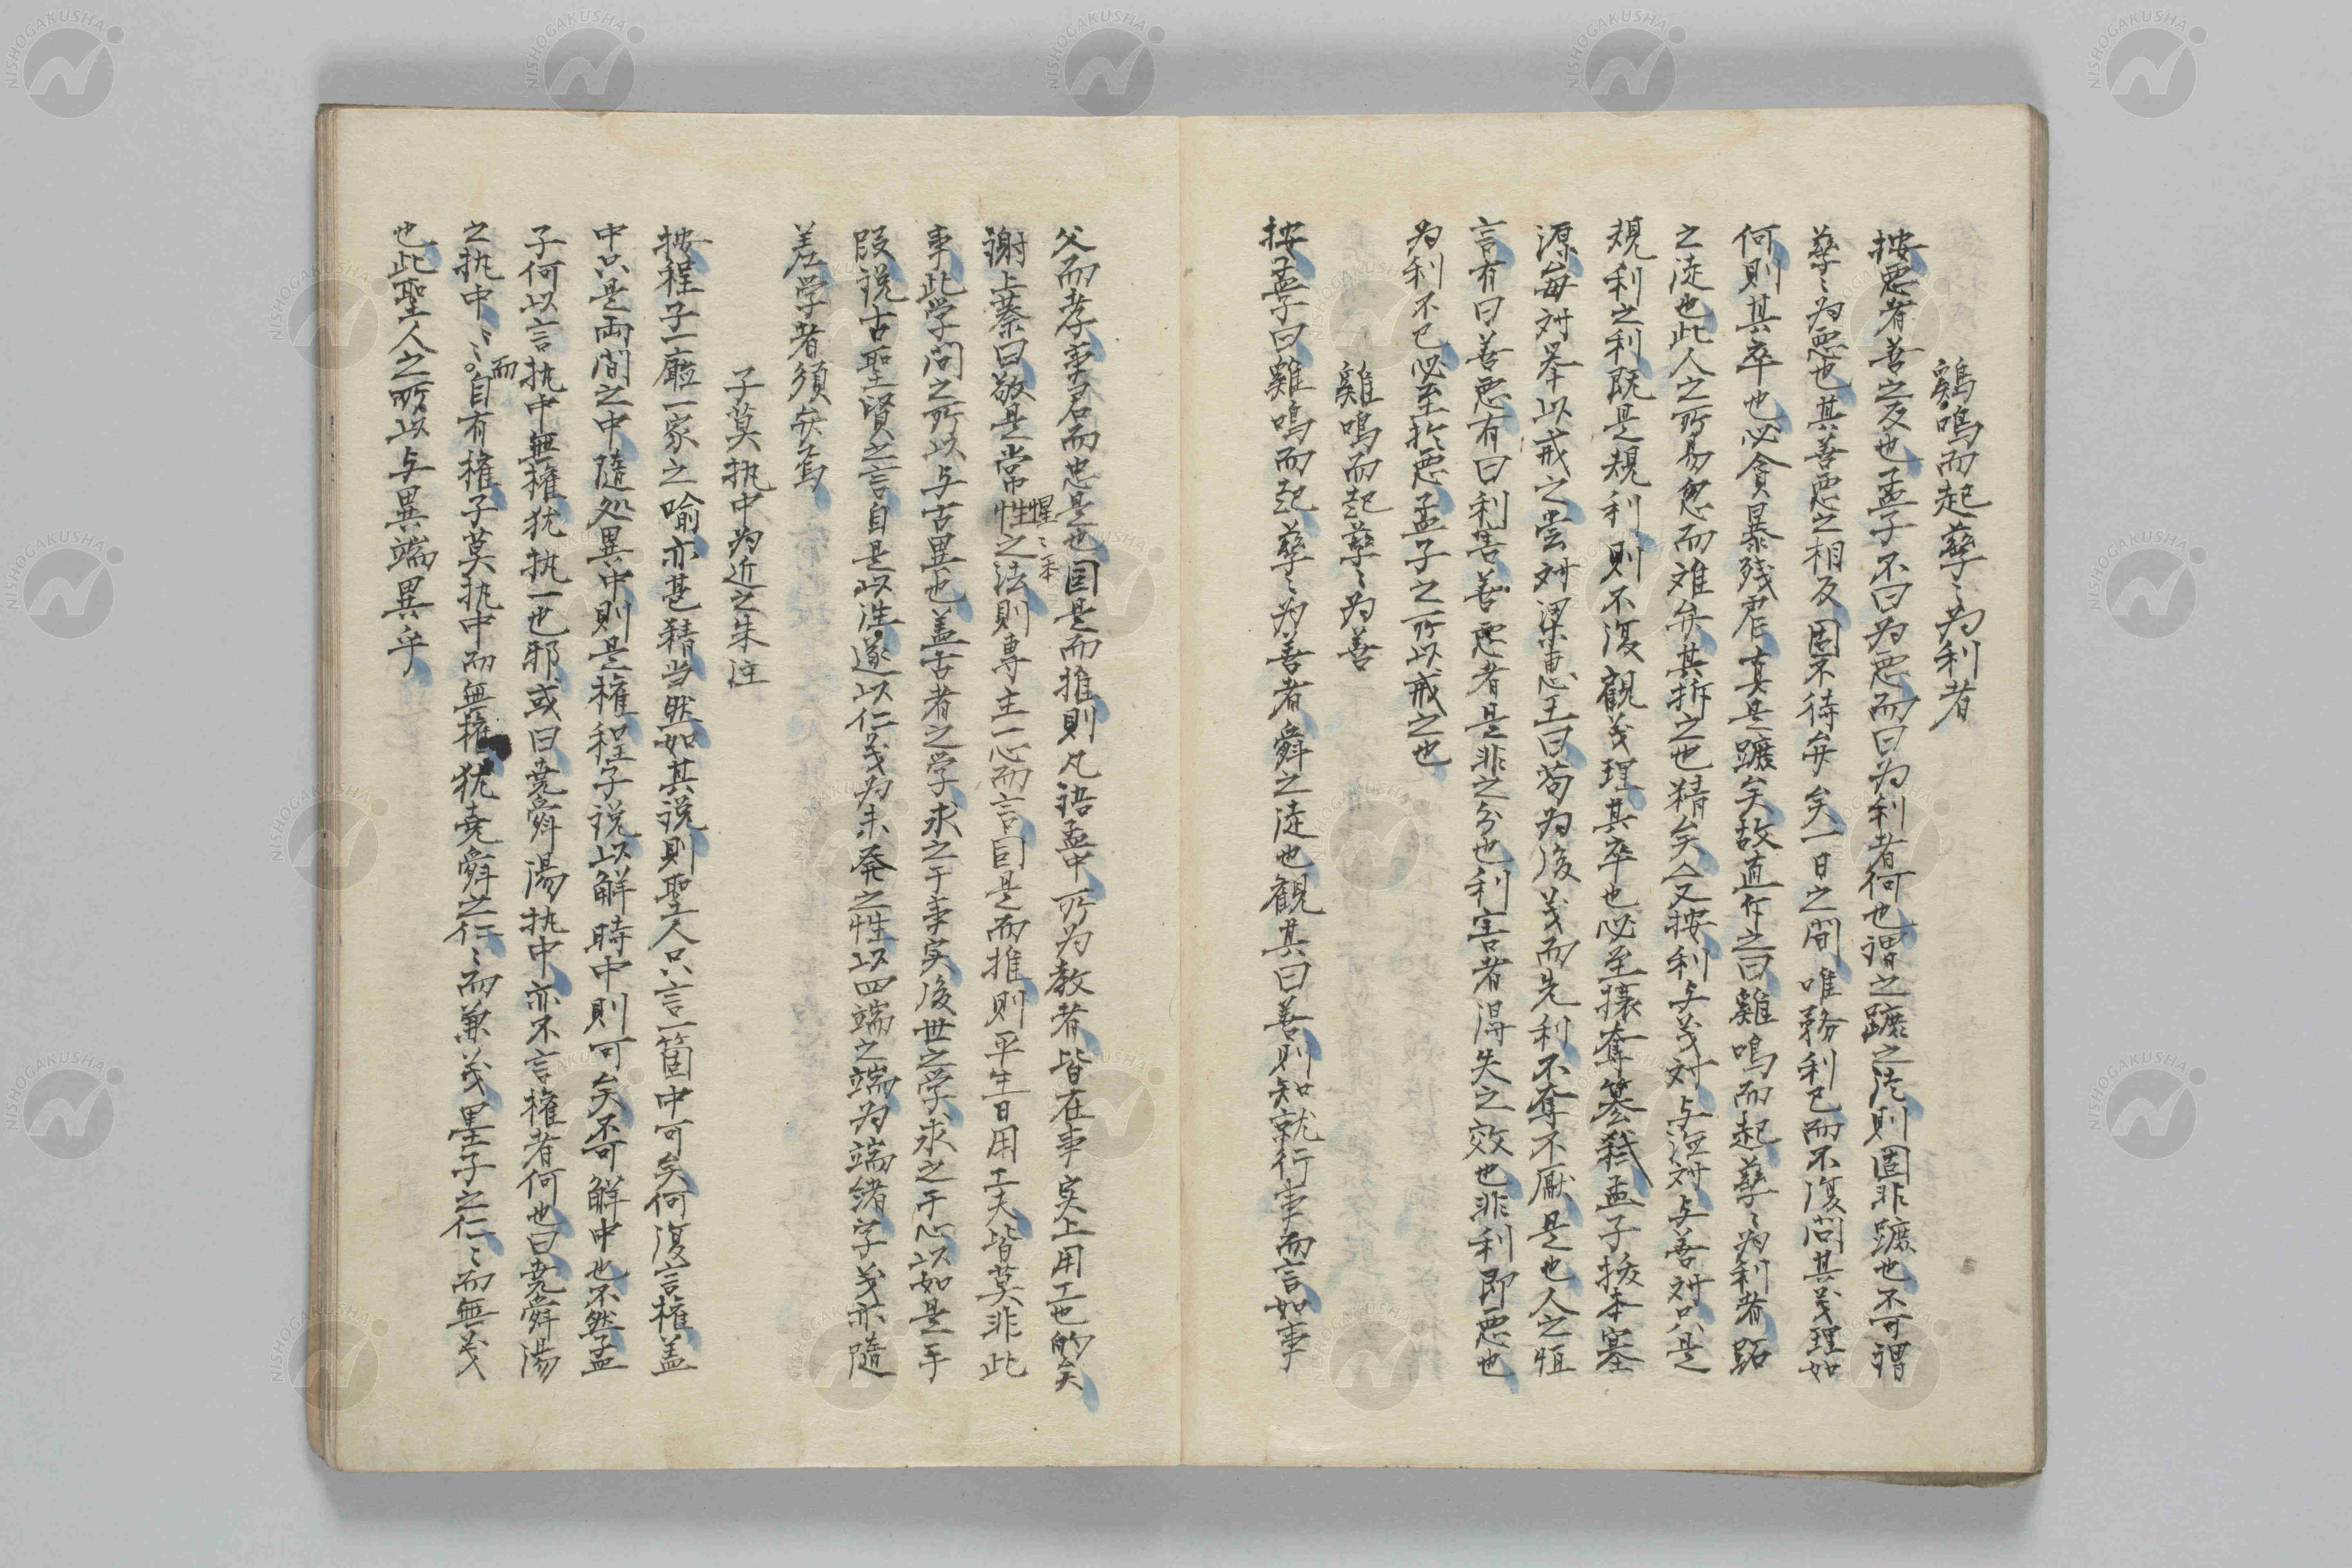 鷄鳴而起孳〻為利者
按悪者善之反也孟子不曰為悪而曰為利者何也謂之蹠之徒則固非蹠也不可謂
孳〻為悪也其善悪之相反固不待弁矣一日之間唯務利己而不復問其義理如
何則其卒也必貪暴残虐真是蹠矣故直斥之曰雞鳴而起孳〻為利者跖
之徒也此人之所易忽而难弁其折之也精矣又按利与義対与対与善対只是
規利之利既是規利則不復観義理其卒也必至攘奪簒弒孟子抜本塞
源每対挙以戒之嘗対梁恵王曰苟為後義而先利不奪不厭是也人之恒
言有曰善悪有曰利害善悪者是非之分也利害者得失之效也非利即悪也
為利不已必至於悪孟子之所以戒之也
雞鳴而起孳〻為善
按孟子曰雞鳴而起孳〻為善者舜之徒也観其曰善則知就行事而言如事
父而孝事君而忠是也因是而推則凡語孟中所為教者皆在事実上用工也的矣
謝上蔡曰敬是常惺〻法則專主一心而言因是而推則平生日用工夫皆莫非此
事此学問之所以与古異也盖古者之学求之于事実後世之学求之于心以如是手
段說古聖賢之言自是以性遂以仁義為未発之性以四端之端為端緒字義亦隨
差学者須弁焉
子莫执中為近之朱註
按程子一廳一家之喻亦甚精当然如其說則聖人只言一箇中可矣何復言権盖
中只是両間之中隨処異中則是権程子說以解時中則可矣不可解中也不然孟
子何以言执中無権犹执一也邪或曰堯舜湯执中亦不言権者何也曰堯舜湯
之执中〻而自有権子莫执中而無権犹堯舜之仁〻而兼義墨子之仁〻而無義
也此聖人之所以与異端異乎